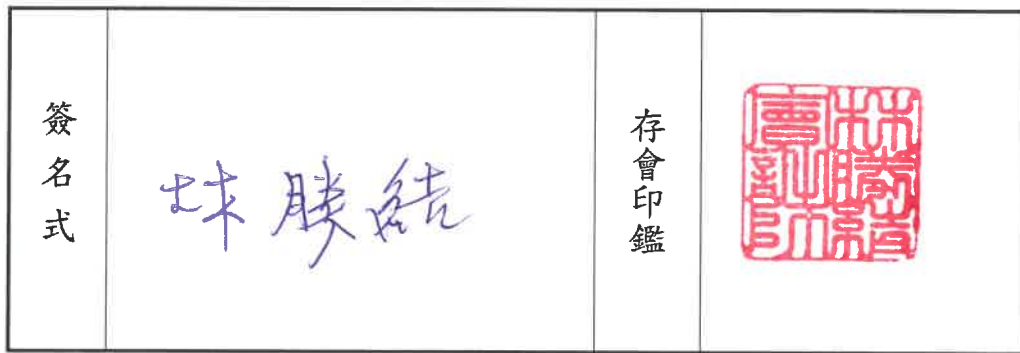 簽名式
林勝結
存會印鑑
林勝結
會計師